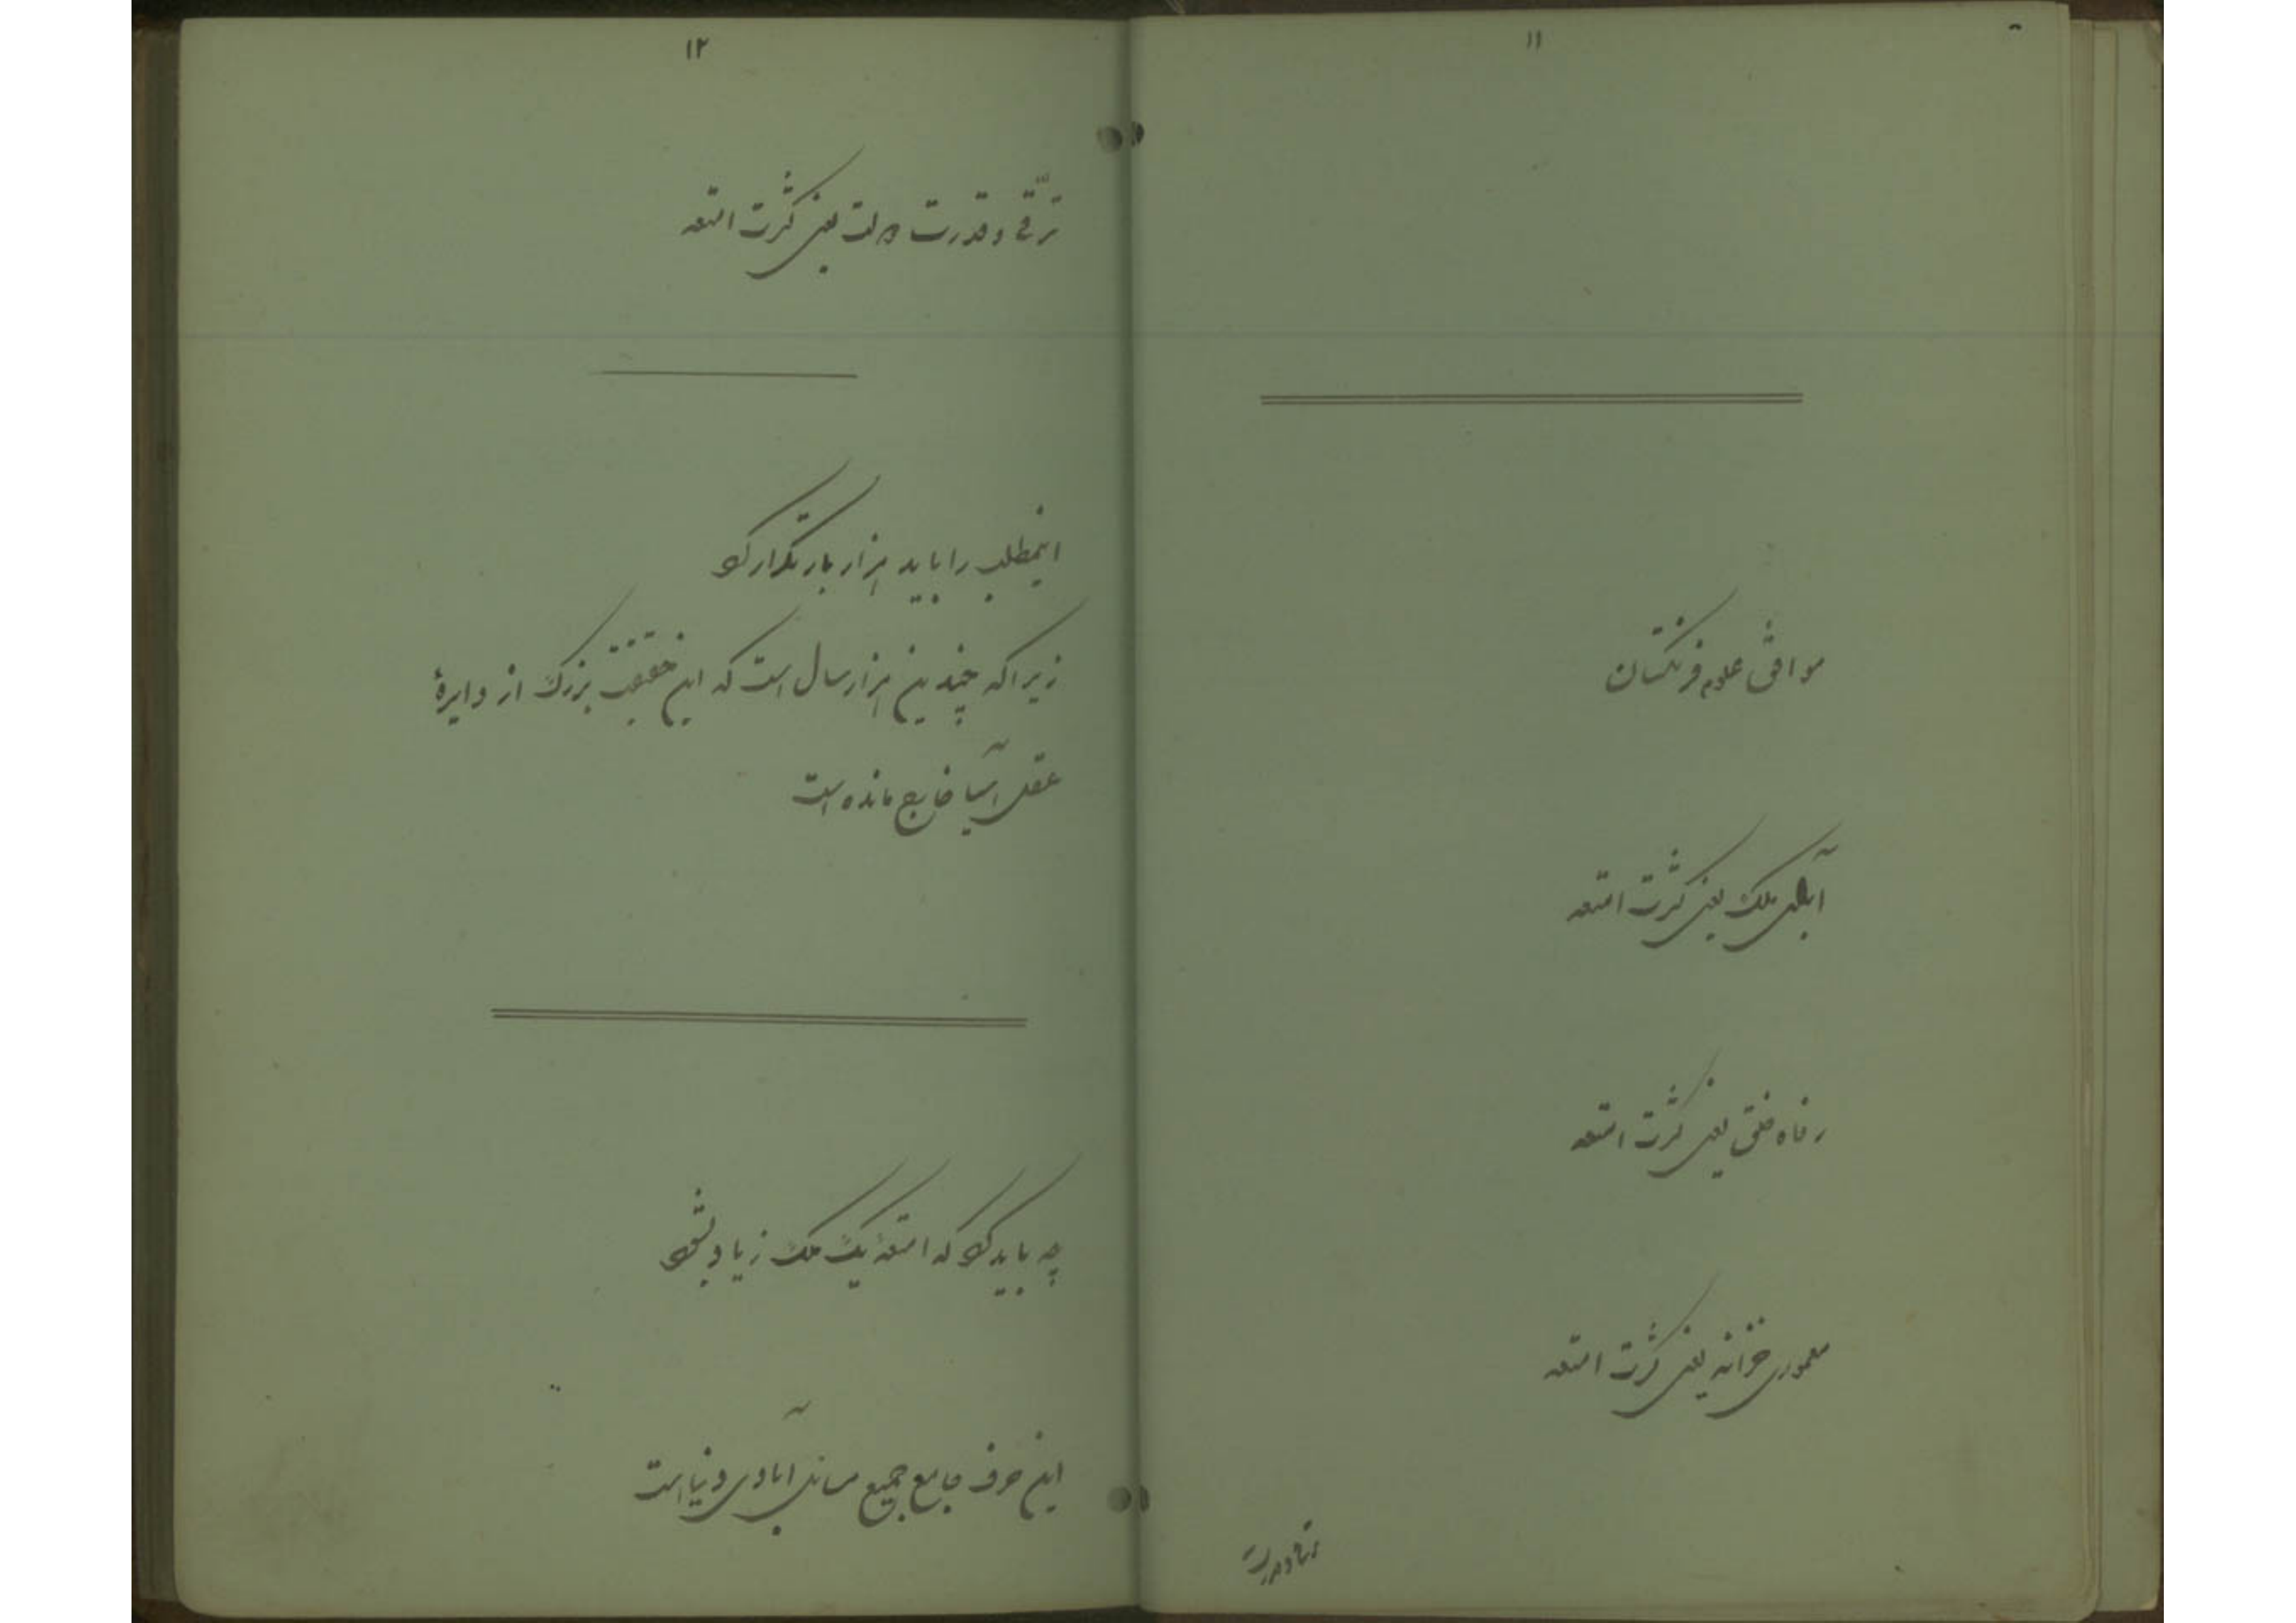 ۱۱
موافق علوم فرنگستان
آبادی ملک یعنی کثرت امتعه
رفاه خلق یعنی کثرت امتعه
معموری خزانه یعنی کثرت امتعه
ترقی و قدرت
۱۲
ترقّی و قدرت دولت یعنی کثرت امتعه
اینمطلب را باید هزار بار تکرار کرد
زیرا که چندین هزار سال است که این حقیقت بزرگ از دایرهٔ
عقل آسیا خارج مانده است
چه باید کرد که امتعهٔ یک ملک زیاد بشود
این حرف جامع جمیع مسائل آبادی دنیا است